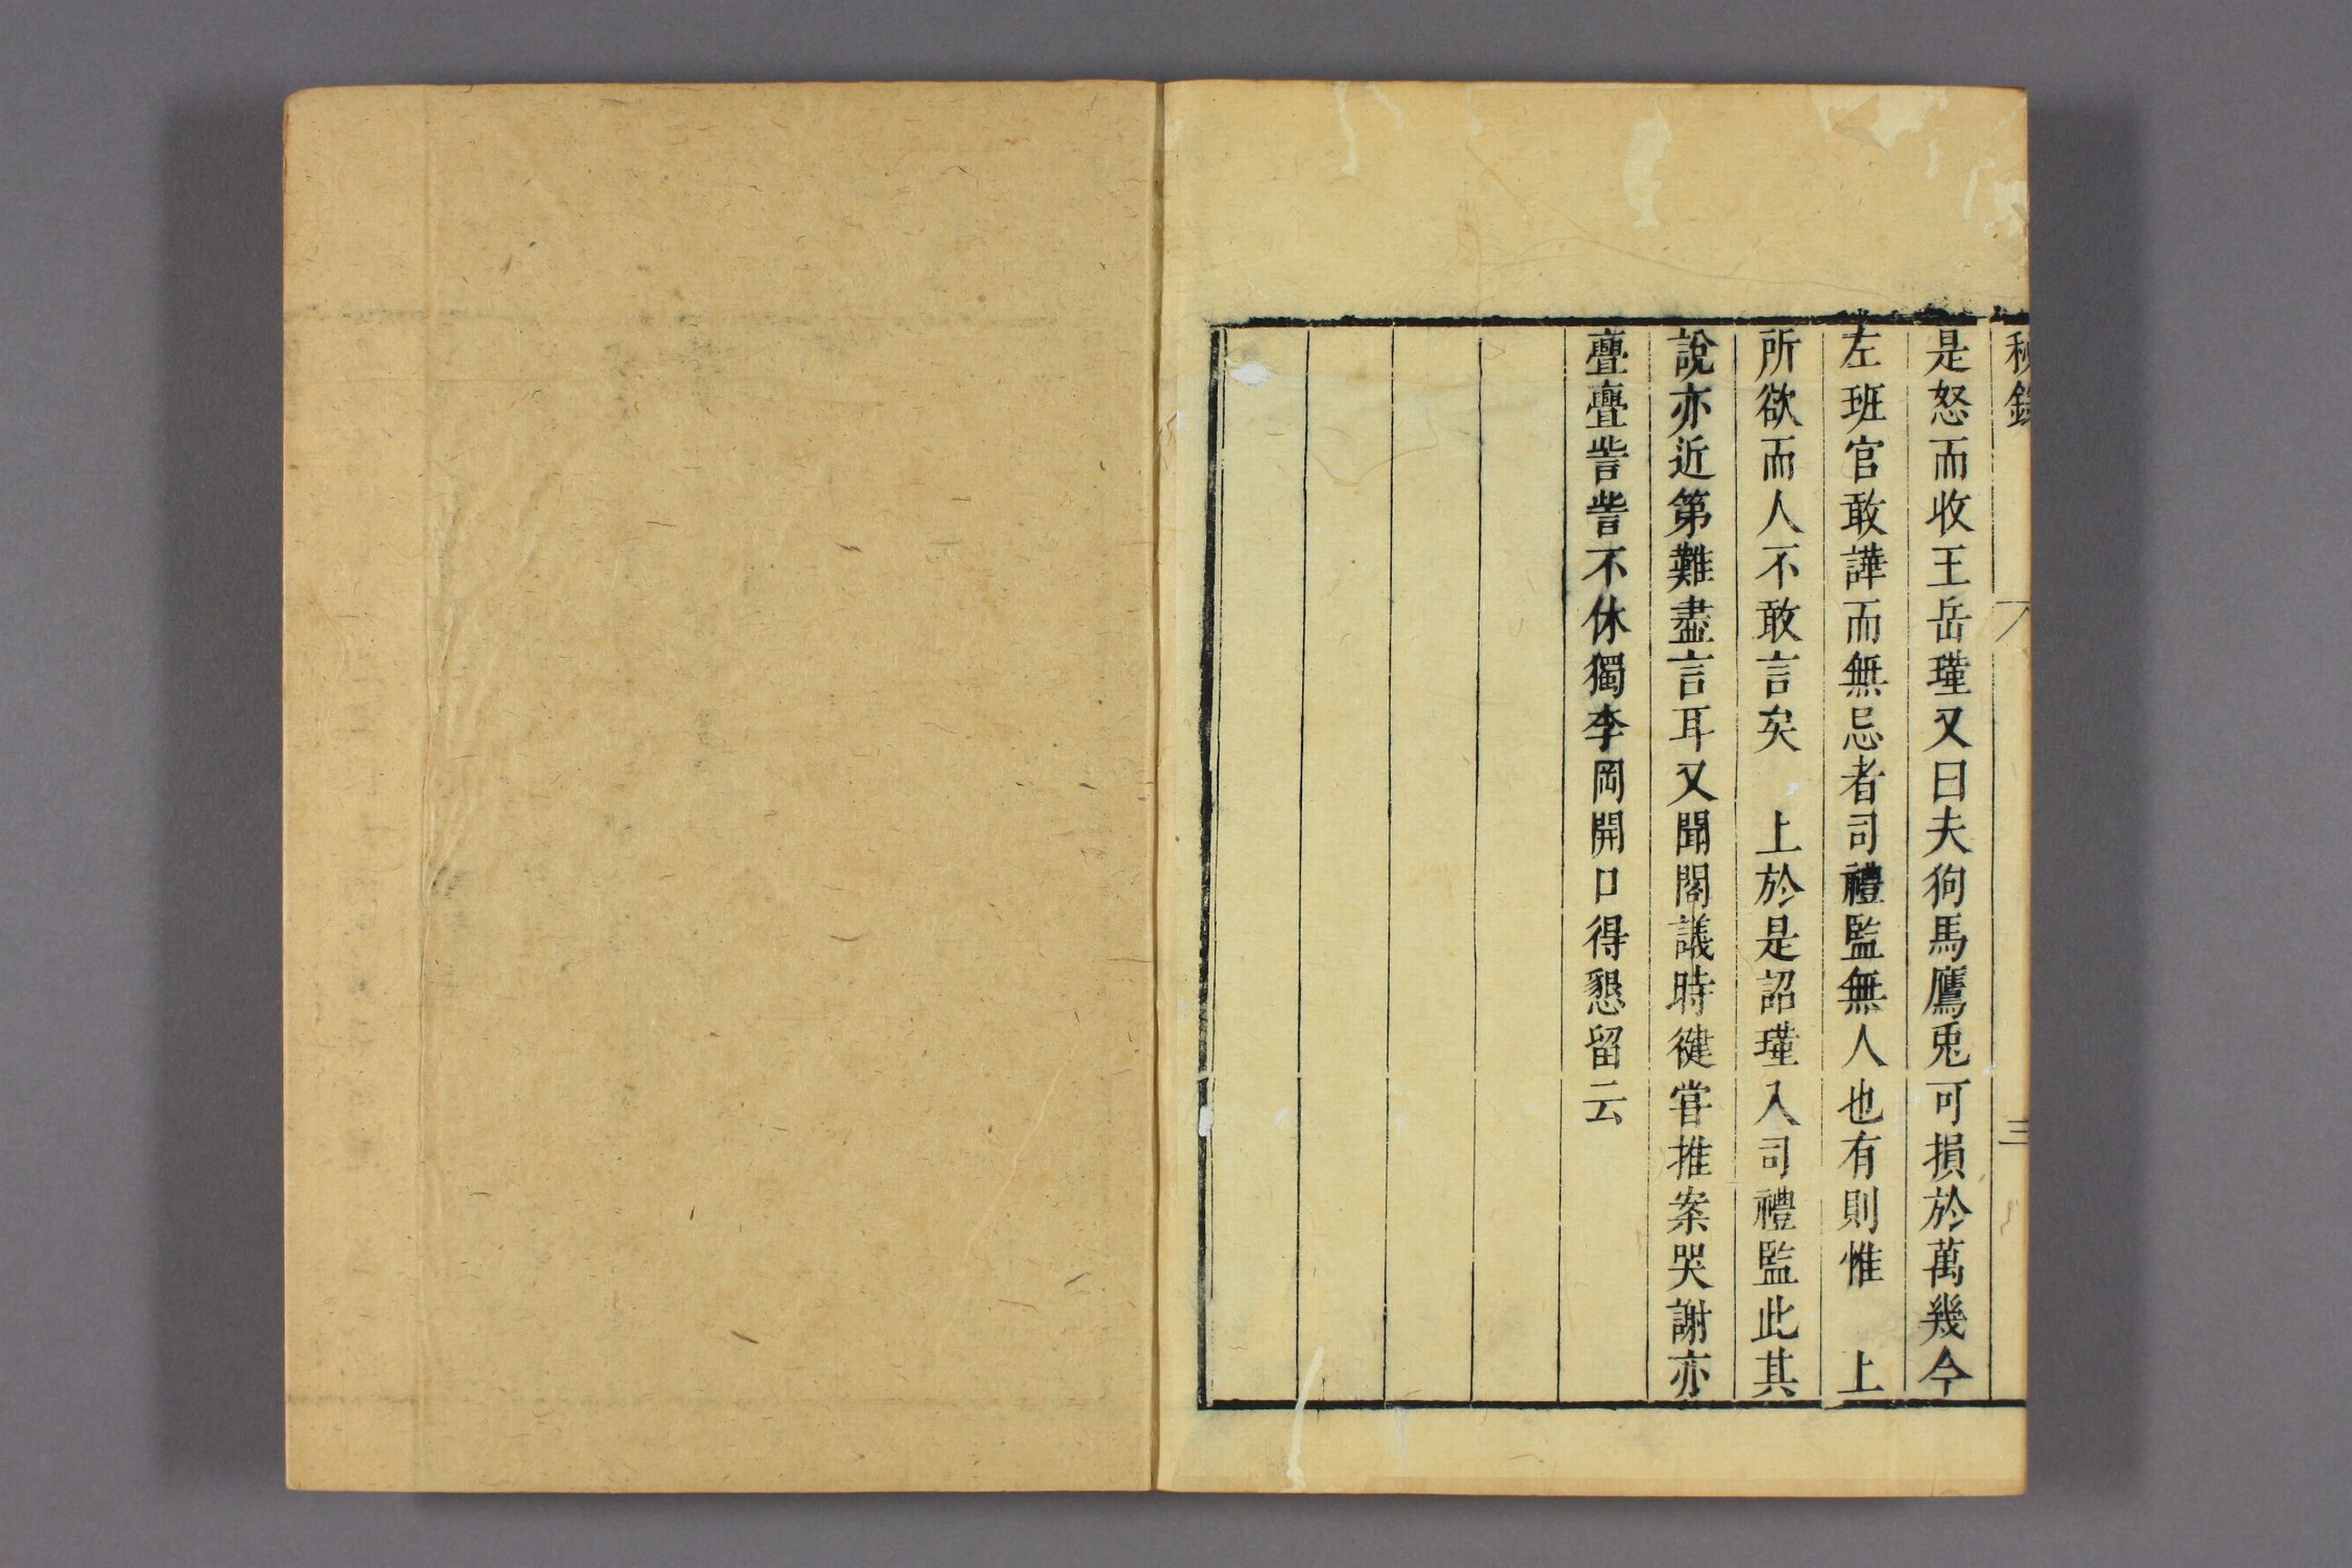 秘錄
三
是怒而收王岳瑾又曰夫狗馬鷹兎可損於萬幾今
左班官敢譁而無忌者司禮監無人也有則惟　上
所欲而人不敢言矣　上於是詔瑾入司禮監此其
說亦近第難盡言耳又聞閣議時健嘗推案哭謝亦
亹亹訾訾不休獨李岡開口得懇留云